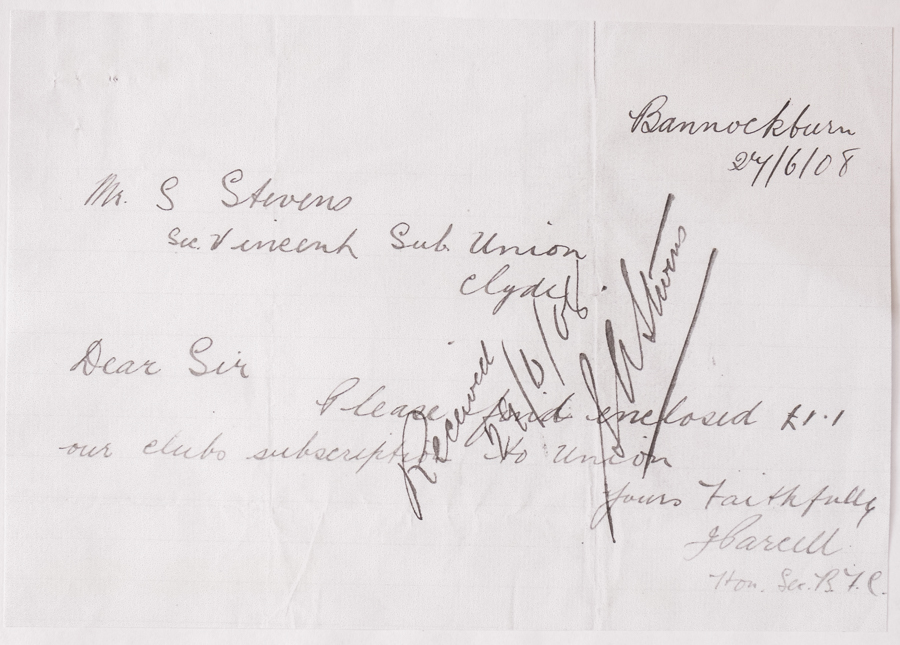 Bannockburn
27/6/08
Mr. S Stevens
Sec. Vincent Sub. Union
Clyde.
Dear Sir
Please find enclosed £1.1
our clubs subscription to Union
Yours Faithfully
Hon. Sec. B.F.C.
Received
/6/08
Stevens